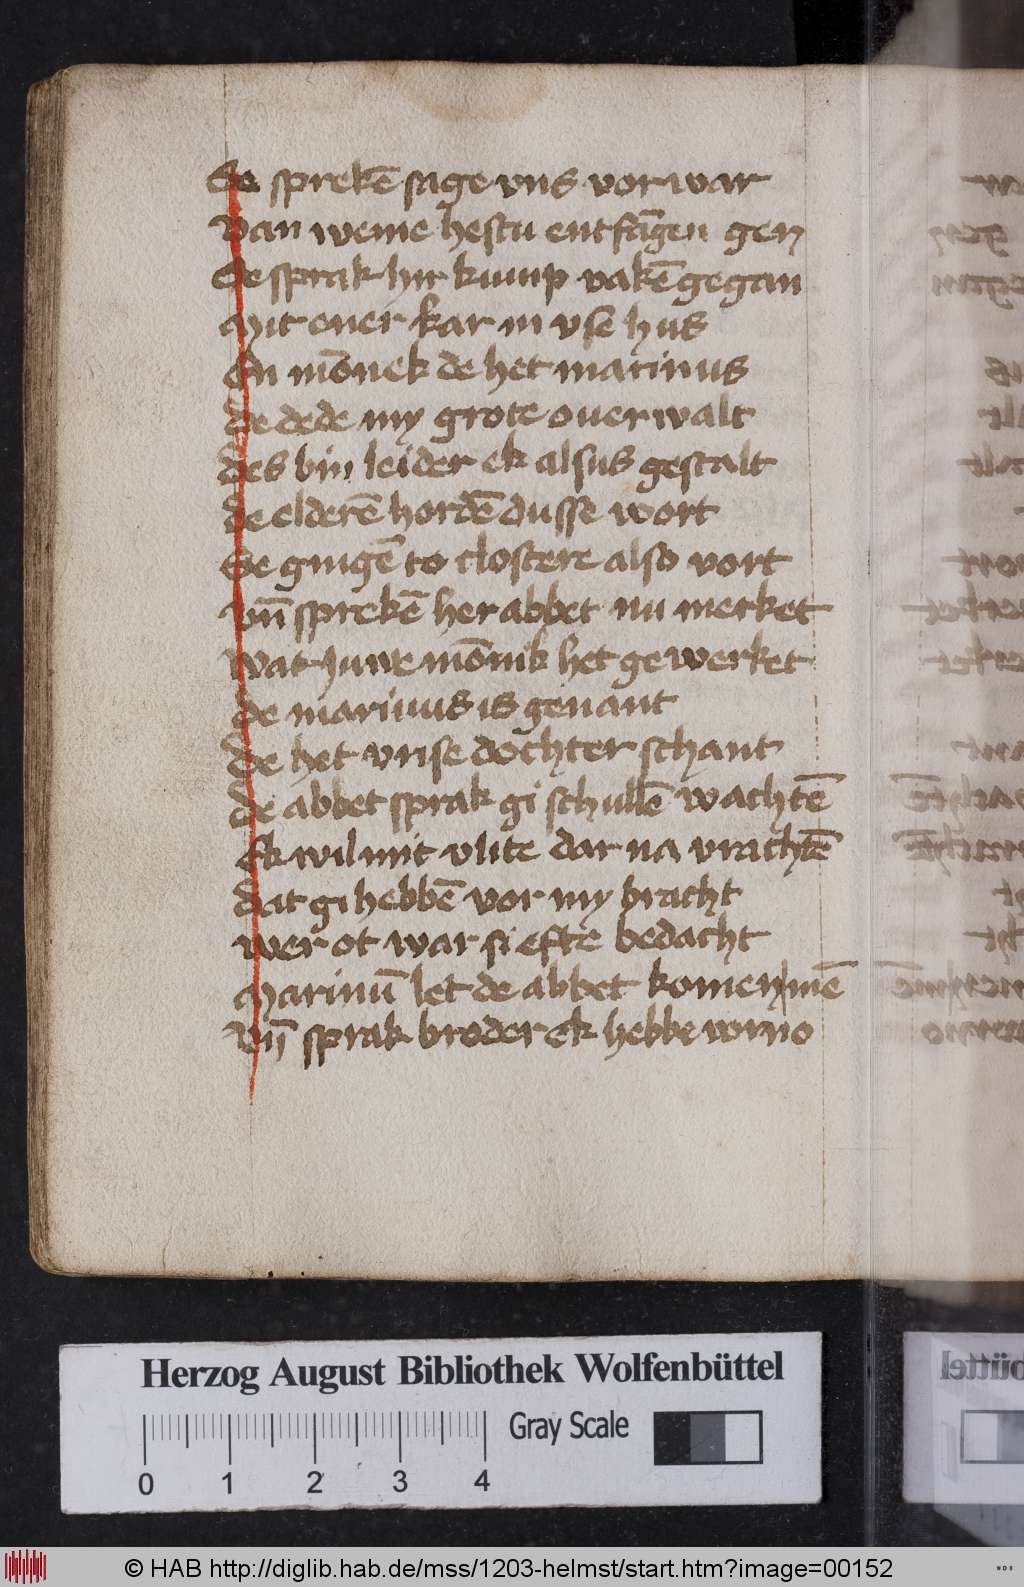 Se sprekē sage vns vor war
Van weme hestu entfāgen gen
Se sprak hir kump vakē gegan
Mit ener kar in vse hus
En mōnek de het marinus
de dede my grote ouerwalt
des bin leider ek alsus gestalt
de elderē hordē dusse wort
Se gingē to clostere also vort
vn̄ sprekē her abbet nu merket
Wat juwe mōnik het gewerket
de marinus is genant
de het vnse dochter schant
de abbet sprak gi schullē wachtē
Ek wil mit vlite dar na vrachtē
dat gi hebbē vor my bracht
wer ot war si efte bedacht
Marinū let de abbet komen
Vn̄ sprak broder Ek hebbe
Herzog August Bibliothek Wolfenbüttel
Gray Scale
0 1 2 3 4
© HAB http://diglib.hab.de/mss/1203-helmst/start.htm?image=00152